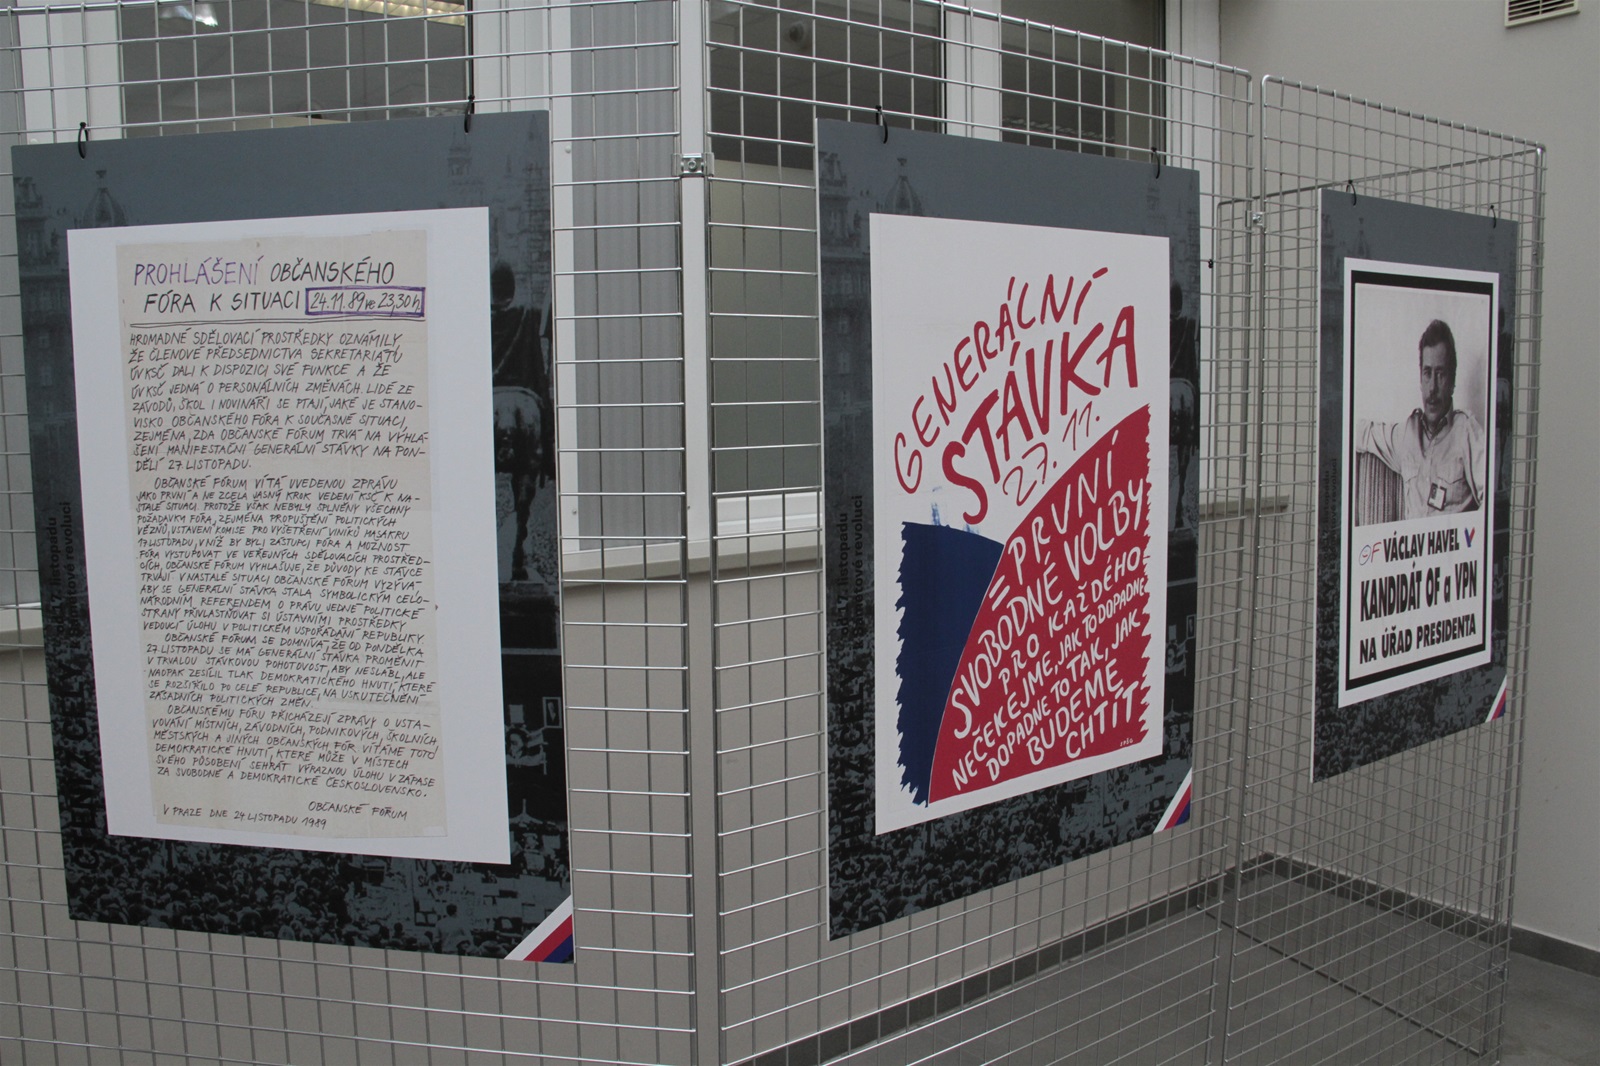 PROHLÁŠENÍ OBČANSKÉHO
FÓRA K SITUACI 24.11.89 ve 23,30 h.
HROMADNÉ SDĚLOVACÍ PROSTŘEDKY OZNÁMILY,
ŽE ČLENOVÉ PŘEDSEDNICTVA SEKRETARIÁTU
ÚV KSČ DALI K DISPOZICI SVÉ FUNKCE A ŽE
ÚV KSČ JEDNÁ O PERSONÁLNÍCH ZMĚNÁCH. LIDÉ ZE
ZÁVODŮ, ŠKOL I NOVINÁŘI SE PTAJÍ, JAKÉ JE STANO-
VISKO OBČANSKÉHO FÓRA K SOUČASNÉ SITUACI,
ZEJMÉNA, ZDA OBČANSKÉ FÓRUM TRVÁ NA VYHLÁ-
ŠENÍ MANIFESTAČNÍ GENERÁLNÍ STÁVKY NA PON-
DĚLÍ 27. LISTOPADU.
OBČANSKÉ FÓRUM VÍTÁ UVEDENOU ZPRÁVU
JAKO PRVNÍ A NE ZCELA JASNÝ KROK VEDENÍ KSČ K NA-
STALÉ SITUACI. PROTOŽE VŠAK NEBYLY SPLNĚNY VŠECHNY
POŽADAVKY FÓRA, ZEJMÉNA PROPUŠTĚNÍ POLITICKÝCH
VĚZŇŮ, USTAVENÍ KOMISE PRO VYŠETŘENÍ VINÍKŮ MASAKRU
17. LISTOPADU, V NÍŽ BY BYLI ZÁSTUPCI FÓRA A MOŽNOST
FÓRA VYSTUPOVAT VE VEŘEJNÝCH SDĚLOVACÍCH PROSTŘED-
CÍCH, OBČANSKÉ FÓRUM VYHLAŠUJE, ŽE DŮVODY KE STÁVCE
TRVAJÍ. V NASTALÉ SITUACI OBČANSKÉ FÓRUM VYZÝVÁ,
ABY SE GENERÁLNÍ STÁVKA STALA SYMBOLICKÝM CELO-
NÁRODNÍM REFERENDEM O PRÁVU JEDNÉ POLITICKÉ
STRANY PŘIVLASTŇOVAT SI ÚSTAVNÍMI PROSTŘEDKY
VEDOUCÍ ÚLOHU V POLITICKÉM USPOŘÁDÁNÍ REPUBLIKY.
OBČANSKÉ FÓRUM SE DOMNÍVÁ, ŽE OD PONDĚLKA
27. LISTOPADU SE MÁ GENERÁLNÍ STÁVKA PROMĚNIT
V TRVALOU STÁVKOVOU POHOTOVOST, ABY NESLÁBL, ALE
NAOPAK ZESÍLIL TLAK DEMOKRATICKÉHO HNUTÍ, KTERÉ
SE ROZŠÍŘILO PO CELÉ REPUBLICE, NA USKUTEČNĚNÍ
ZÁSADNÍCH POLITICKÝCH ZMĚN.
OBČANSKÉMU FÓRU PŘICHÁZEJÍ ZPRÁVY O USTA-
VOVÁNÍ MÍSTNÍCH, ZÁVODNÍCH, PODNIKOVÝCH, ŠKOLNÍCH,
MĚSTSKÝCH A JINÝCH OBČANSKÝCH FÓR. VÍTÁME TOTO
DEMOKRATICKÉ HNUTÍ, KTERÉ MŮŽE V MÍSTECH
SVÉHO PŮSOBENÍ SEHRÁT VÝRAZNOU ÚLOHU V ZÁPASE
ZA SVOBODNÉ A DEMOKRATICKÉ ČESKOSLOVENSKO.
OBČANSKÉ FÓRUM
V PRAZE DNE 24. LISTOPADU 1989
GENERÁLNÍ
STÁVKA
27. 11.
= PRVNÍ
SVOBODNÉ VOLBY
PRO KAŽDÉHO-
NEČEKEJME, JAK TO DOPADNE
DOPADNE TO TAK, JAK
BUDEME
CHTÍT
OF VÁCLAV HAVEL
KANDIDÁT OF a VPN
NA ÚŘAD PRESIDENTA